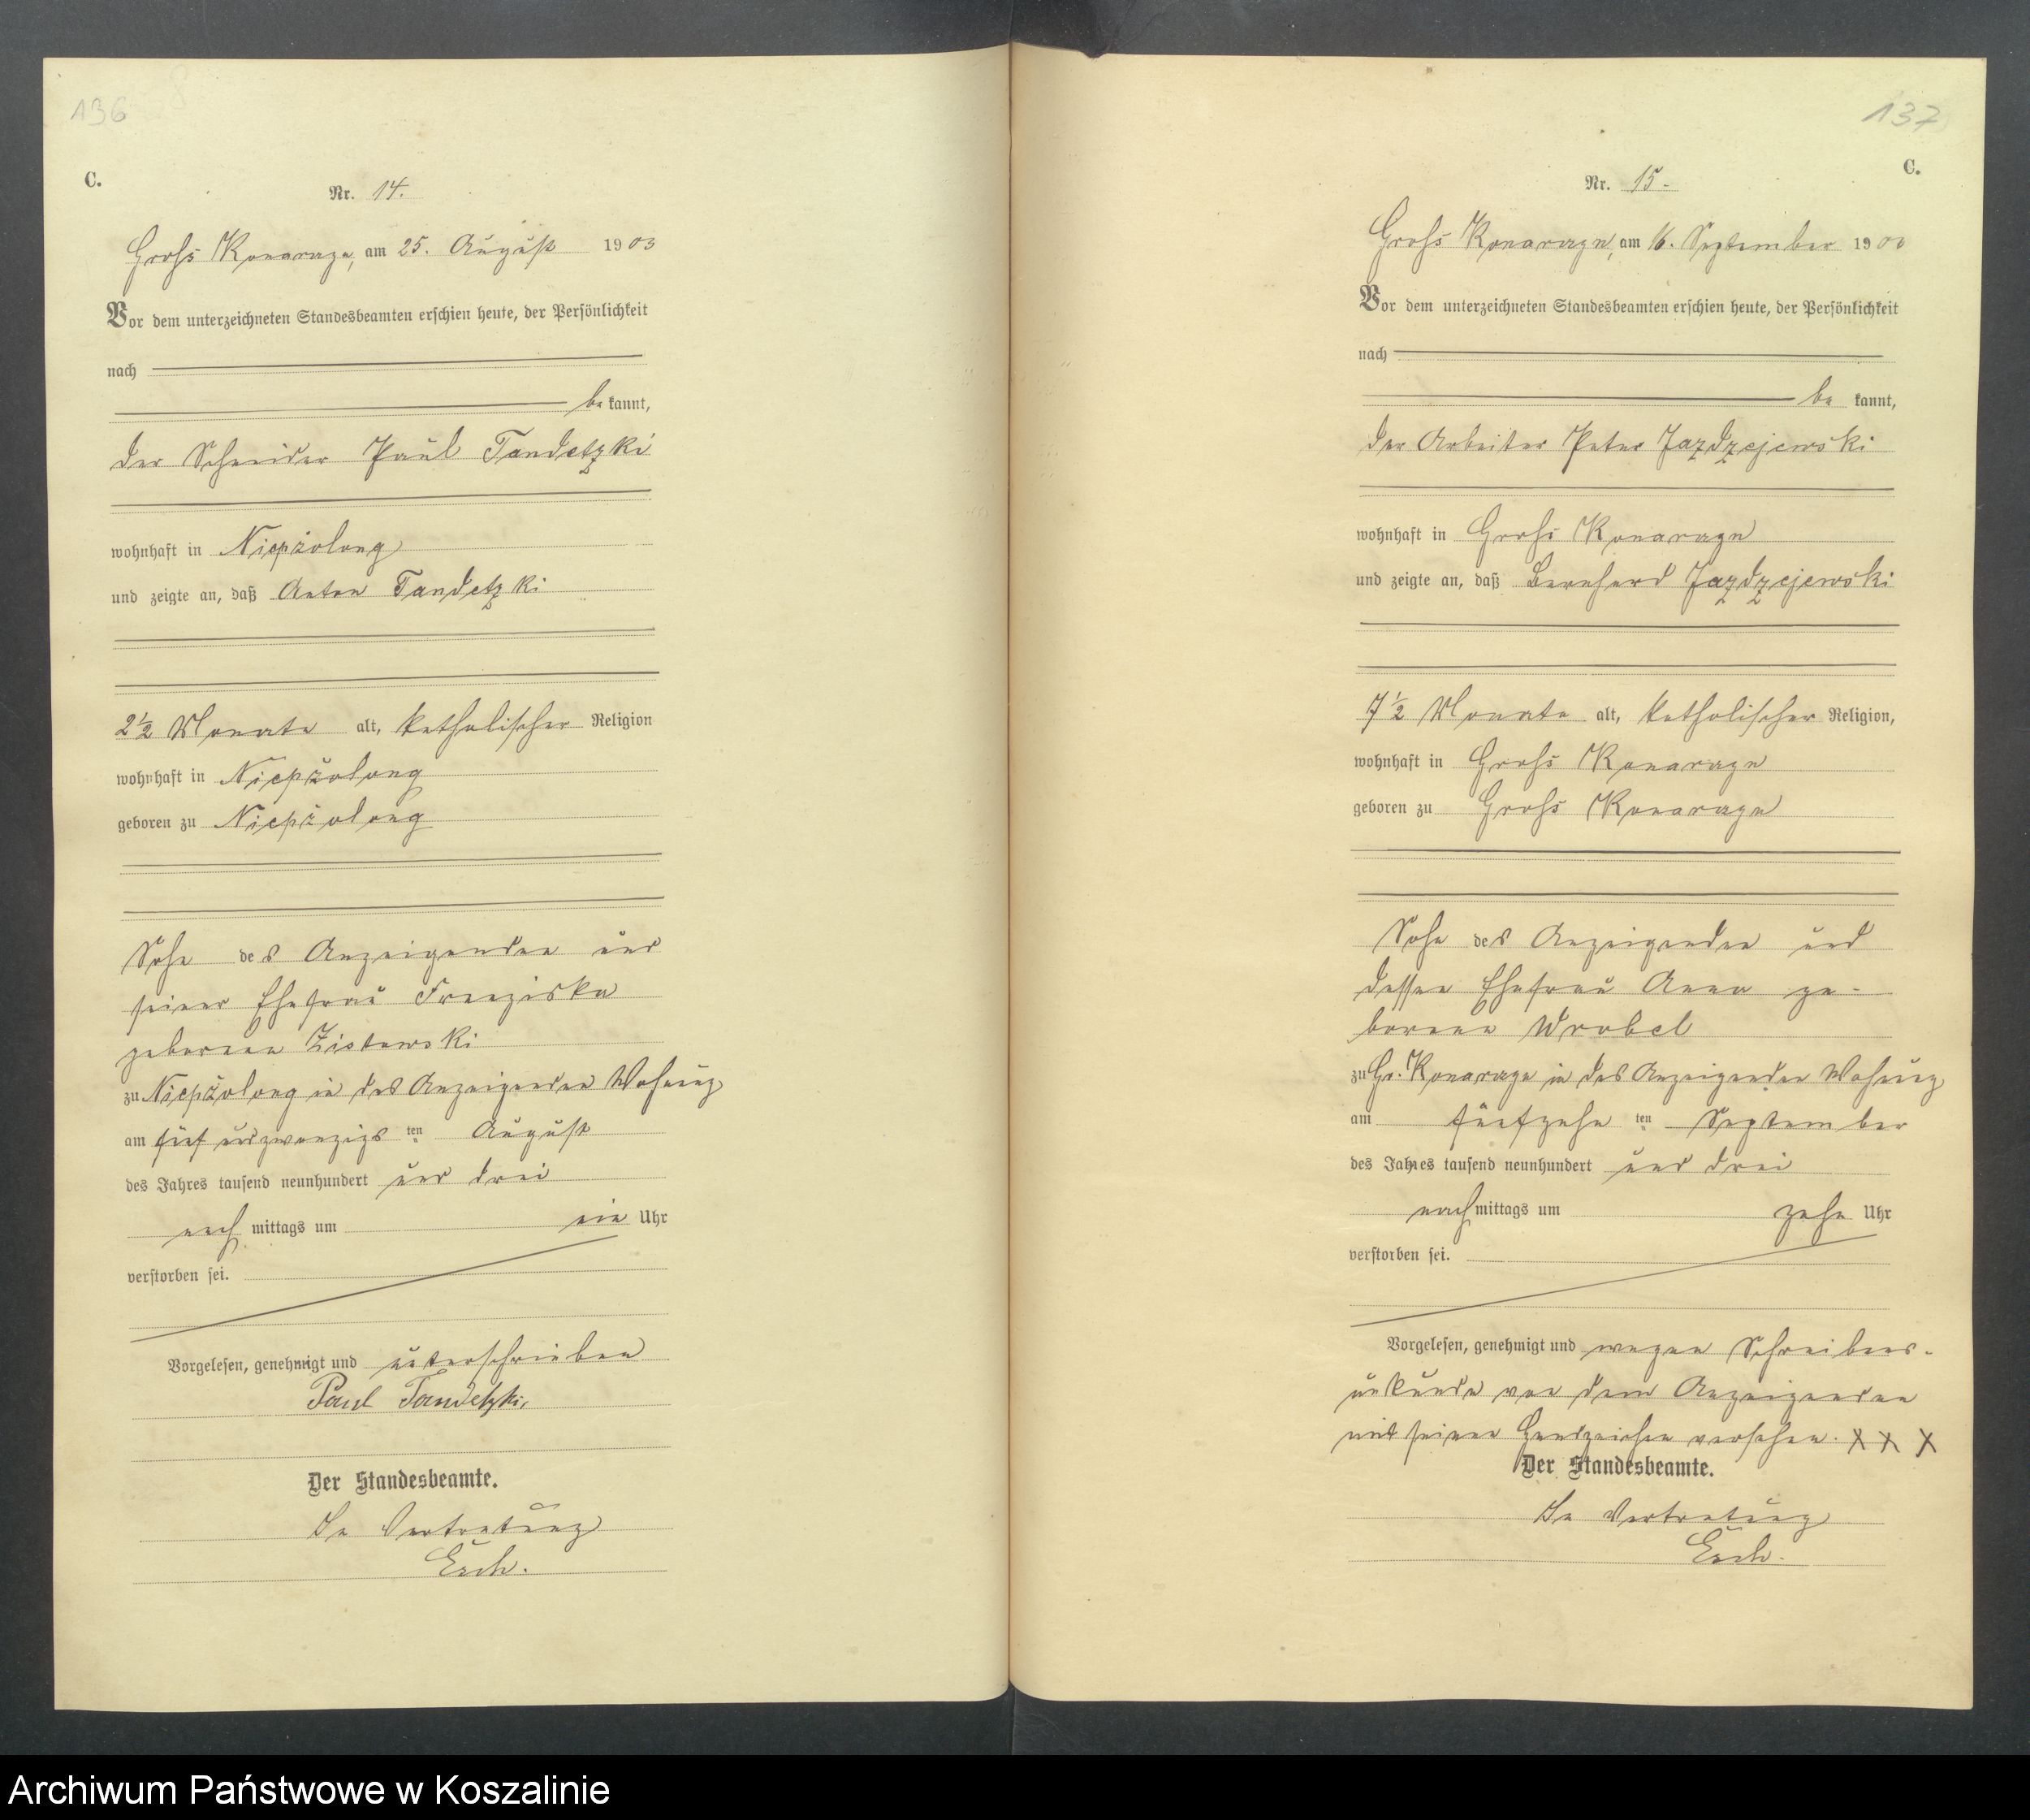 136
C.
Nr. 14.
Groß Konarczyn, am 25. August 1903
Vor dem unterzeichneten Standesbeamten erschien heute, der Persönlichkeit
nach
be kannt,
der Schneider Paul Tandetzki
wohnhaft in Niepszolong
und zeigte an, daß Anton Tandetzki
2½ Monate alt, katholischer Religion
wohnhaft in Niepszolong
geboren zu Niepszolong
Sohn des Anzeigenden und
seiner Ehefrau Franziska
geborenen
zu Niepszolong in des Anzeigenden Wohnung
am fünf und zwanzigs ten August
des Jahres tausend neunhundert und drei
nach mittags um ein Uhr
verstorben sei.
Vorgelesen, genehmigt und unterschrieben
Paul Tandetzki.
Der Standesbeamte.
In Vertretung
137
C.
Nr. 15.
Groß Konarzyn, am 16. September 19
Vor dem unterzeichneten Standesbeamten erschien heute, der Persönlichkeit
nach
be kannt,
der Arbeiter Peter Jazdzejewski
wohnhaft in Groß Konarzyn
und zeigte an, daß Bernhard Jazdzejewski
7½ Monate alt, katholischer Religion,
wohnhaft in Groß Konarzyn
geboren zu Groß Konarzyn
Sohn des Anzeigenden und
dessen Ehefrau Anna ge-
borenen Wrobel
zu Gr. Konarzyn in des Anzeigenden Wohnung
am fünfzehn ten September
des Jahres tausend neunhundert und drei
nach mittags um zehn Uhr
verstorben sei.
Vorgelesen, genehmigt und wegen Schreibens-
unkunde von dem Anzeigenden
mit seinen Handzeichen versehen. X X X
Der Standesbeamte.
In Vertretung
Archiwum Państwowe w Koszalinie